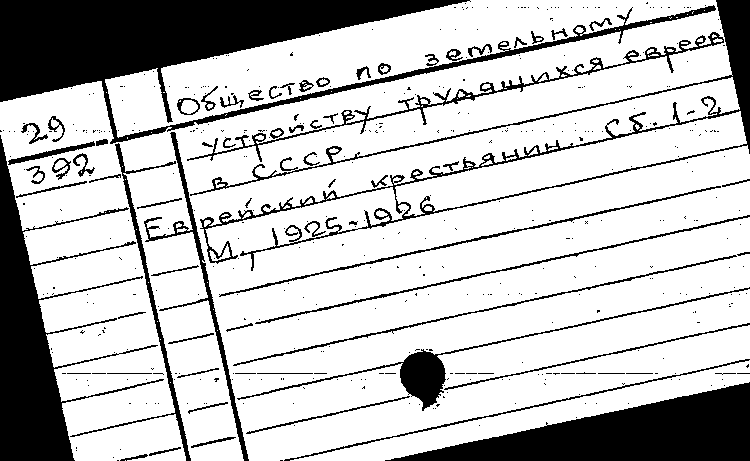 29
392
Общество по земельному
устройству трудящихся евреев
в СССР.
Еврейский крестьянин. Сб. 1-2
М., 1925-1926